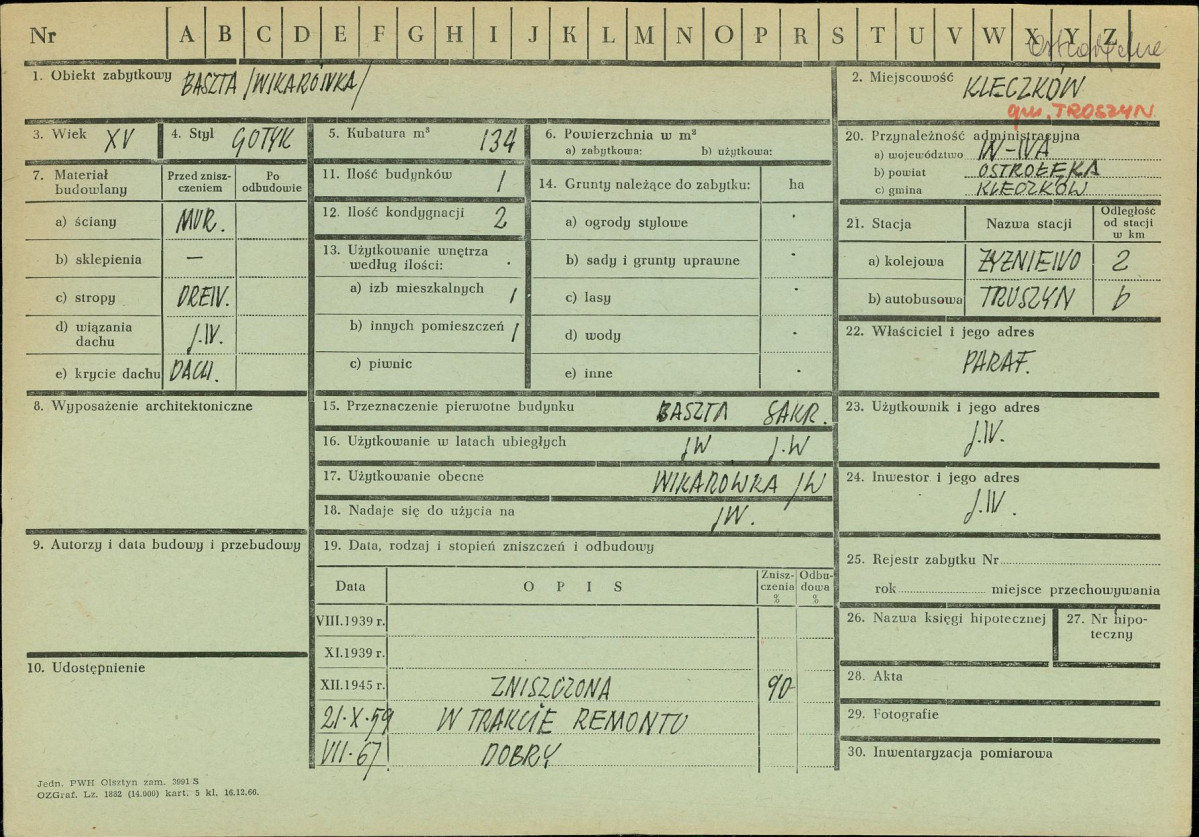 Nr A B C D E F G H I J K L M N O P R S T U V W X Y Z
1. Obiekt zabytkowy BASZTA /WIKARÓWKA/
2. Miejscowość KLECZKÓW
gm. TROSZYN
3. Wiek XV
4. Styl GOTYK
5. Kubatura m³ 134
6. Powierzchnia w m²
a) zabytkowa: b) użytkowa:
7. Materiał budowlany
Przed znisz-
czeniem
Po
odbudowie
a) ściany MUR.
b) sklepienia —
c) stropy DREW.
d) wiązania
dachu J.W.
e) krycie dachu DACH.
8. Wyposażenie architektoniczne
9. Autorzy i data budowy i przebudowy
10. Udostępnienie
11. Ilość budynków 1
12. Ilość kondygnacji 2
13. Użytkowanie wnętrza
według ilości:
a) izb mieszkalnych 1
b) innych pomieszczeń 1
c) piwnic
14. Grunty należące do zabytku: ha
a) ogrody stylowe
b) sady i grunty uprawne
c) lasy
d) wody
e) inne
15. Przeznaczenie pierwotne budynku BASZTA SAKR.
16. Użytkowanie w latach ubiegłych JW. J.W
17. Użytkowanie obecne WIKARÓWKA JW
18. Nadaje się do użycia na JW.
19. Data, rodzaj i stopień zniszczeń i odbudowy
Data O P I S
Znisz-
czenia
%
Odbu-
dowa
%
VIII.1939 r.
XI.1939 r.
XII.1945 r. ZNISZCZONA 90
21·X·59 W TRAKCIE REMONTU
VII·67 DOBRY
20. Przynależność administracyjna
a) województwo W-WA
b) powiat OSTROŁĘKA
c) gmina KLECZKÓW
21. Stacja Nazwa stacji
Odległość
od stacji
w km
a) kolejowa ŻYZNIEWO 2
b) autobusowa TRUSZYN 6
22. Właściciel i jego adres
PARAF.
23. Użytkownik i jego adres
J.W.
24. Inwestor i jego adres
J.W.
25. Rejestr zabytku Nr
rok miejsce przechowywania
26. Nazwa księgi hipotecznej
27. Nr hipo-
teczny
28. Akta
29. Fotografie
30. Inwentaryzacja pomiarowa
Jedn. PWH Olsztyn zam. 3991/S
OZGraf. Lz. 1882 (14.000) kart. 5 kl. 16.12.66.